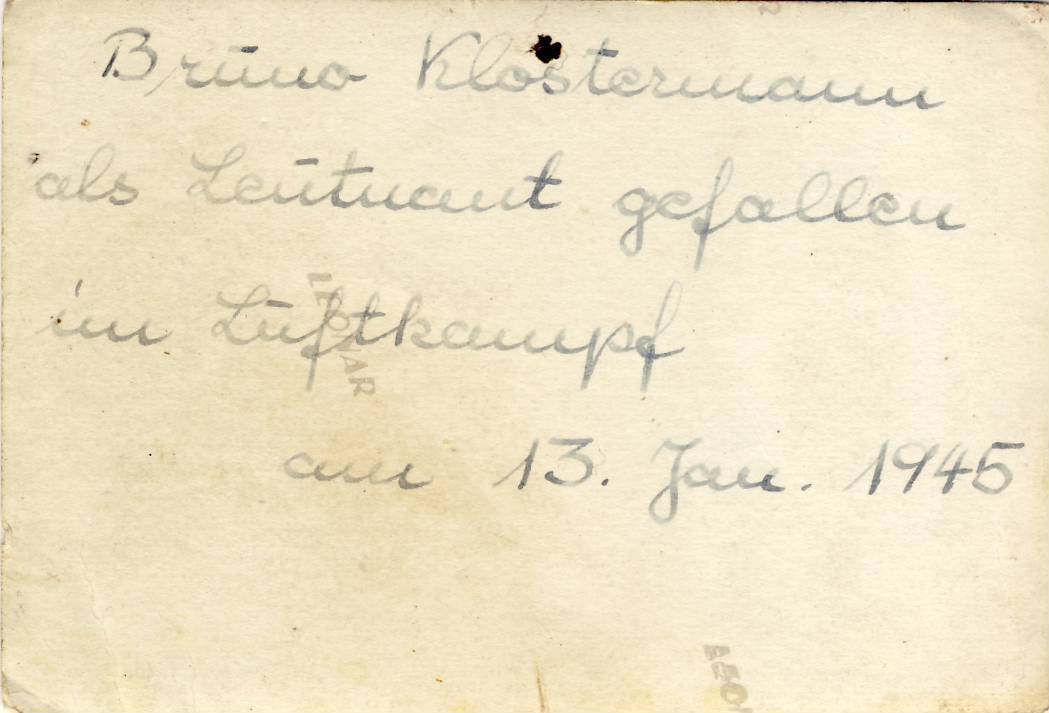 Bruno Klostermann
als Leutnant gefallen
im Luftkampf
am 13. Jan. 1945
LEONAR
LEON